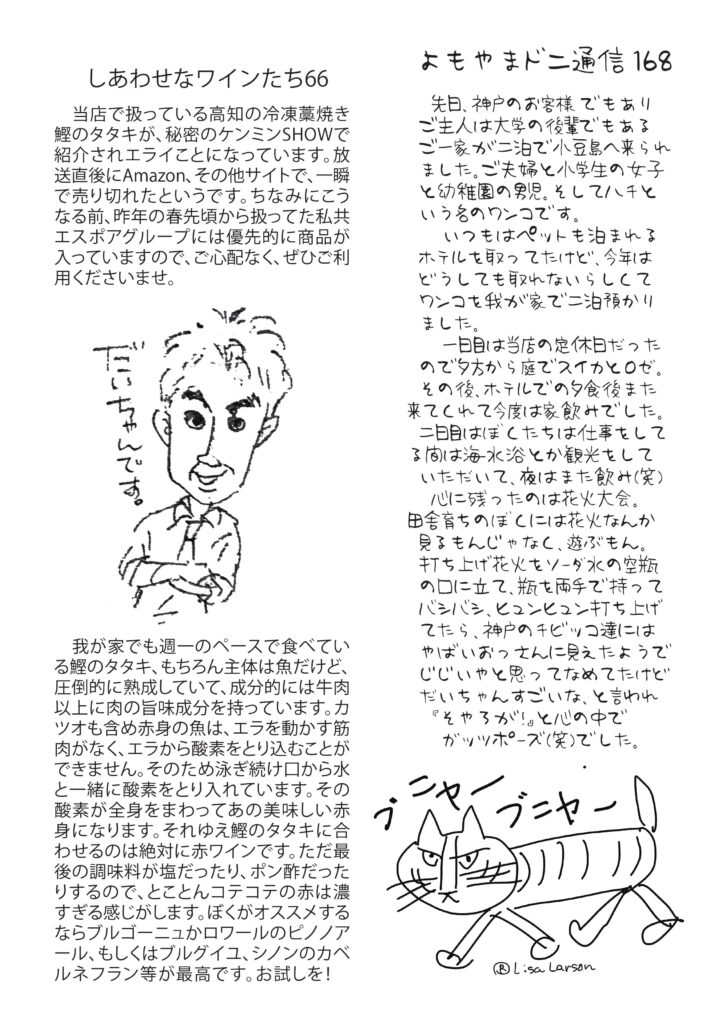 しあわせなワインたち66
当店で扱っている高知の冷凍藁焼き
鰹のタタキが、秘密のケンミンSHOWで
紹介されエライことになっています。放
送直後にAmazon、その他サイトで、一瞬
で売り切れたというです。ちなみにこう
なる前、昨年の春先頃から扱ってた私共
エスポアグループには優先的に商品が
入っていますので、ご心配なく、ぜひご利
用くださいませ。
だいちゃんです。
我が家でも週一のペースで食べてい
る鰹のタタキ、もちろん主体は魚だけど、
圧倒的に熟成していて、成分的には牛肉
以上に肉の旨味成分を持っています。カ
ツオも含め赤身の魚は、エラを動かす筋
肉がなく、エラから酸素をとり込むことが
できません。そのため泳ぎ続け口から水
と一緒に酸素をとり入れています。その
酸素が全身をまわってあの美味しい赤
身になります。それゆえ鰹のタタキに合
わせるのは絶対に赤ワインです。ただ最
後の調味料が塩だったり、ポン酢だった
りするので、とことんコテコテの赤は濃
すぎる感じがします。ぼくがオススメする
ならブルゴーニュかロワールのピノノア
ール、もしくはブルグイユ、シノンのカベ
ルネフラン等が最高です。お試しを!
よもやまドニ通信168
先日、神戸のお客様でもあり
ご主人は大学の後輩でもある
ご一家が二泊で小豆島へ来られ
ました。ご夫婦と小学生の女子
と幼稚園の男児。そしてハチと
いう名のワンコです。
いつもはペットも泊まれる
ホテルを取ってたけど、今年は
どうしても取れないらしくて
ワンコを我が家で二泊預かり
ました。
一日目は当店の定休日だった
ので夕方から庭でスイカとロゼ。
その後、ホテルでの夕食後また
来てくれて今度は家飲みでした。
二日目はぼくたちは仕事をして
る間は海水浴とか観光をして
いただいて、夜はまた飲み(笑)
心に残ったのは花火大会。
田舎育ちのぼくには花火なんか
見るもんじゃなく、遊ぶもん。
打ち上げ花火をソーダ水の空瓶
の口に立て、瓶を両手で持って
バシバシ、ヒュンヒュン打ち上げ
てたら、神戸のチビッコ達には
やばいおっさんに見えたようで
じじいやと思ってなめてたけど
だいちゃんすごいな、と言われ
『そやろが!』と心の中で
ガッツポーズ(笑)でした。
ブニャー
ブニャー
® Lisa Larson